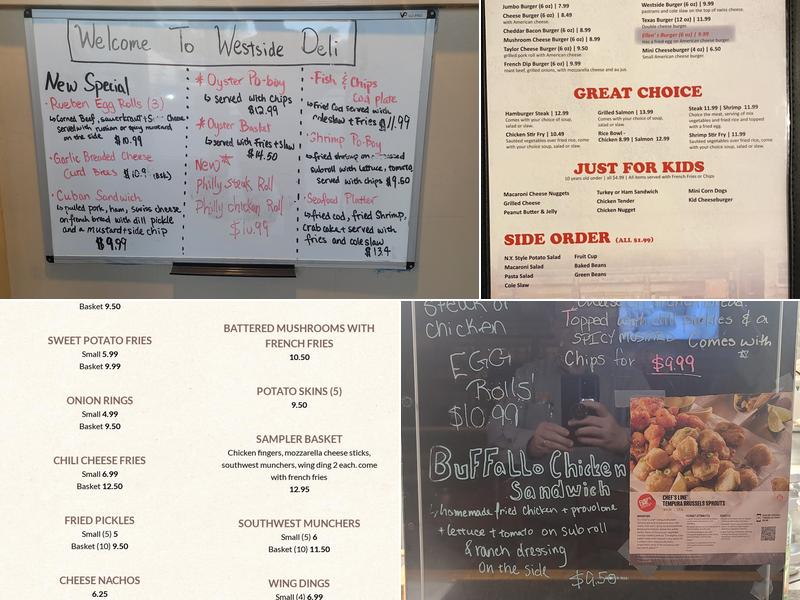 Welcome To Westside Deli
New Special
• Rueben Egg Rolls (3)
↳ Corned Beef, sauerkraut + S... cheese
served with russian or spicy mustard
on the side $10.99
• Garlic Breaded Cheese
Curd Bites $10.9
• Cuban Sandwich
↳ pulled pork, ham, swiss cheese
on french bread with dill pickle
and a mustard + side chip
$9.99
* Oyster Po-boy
↳ served with chips
$12.99
* Oyster Basket
↳ served with Fries + Slaw
$14.50
New *
Philly steak Roll
Philly chicken Roll
$10.99
• Fish & Chips
Cod plate
↳ Fried Cod served with
coleslaw + Fries $11.99
• Shrimp Po-Boy
↳ fried shrimp on
subroll with lettuce, tomato
served with chips $9.50
• Seafood Platter
↳ fried cod, fried Shrimp,
crab cake + served with
fries and coleslaw
$13.4
Jumbo Burger (6 oz) | 7.99
Cheese Burger (6 oz) | 8.49
with American cheese.
Cheddar Bacon Burger (6 oz) | 8.99
Mushroom Cheese Burger (6 oz) | 8.99
Taylor Cheese Burger (6 oz) | 9.50
grilled pork roll and American cheese.
French Dip Burger (6 oz) | 9.99
roast beef, grilled onions, with mozzarella cheese and au jus.
Westside Burger (6 oz) | 9.99
pastrami and cole slaw on the top of swiss cheese.
Texas Burger (12 oz) | 11.99
Double cheese burger.
Ellen's Burger (6 oz) | 9.99
Has a fried egg on American cheese burger.
Mini Cheeseburger (4 oz) | 6.50
Small American cheese burger.
GREAT CHOICE
Hamburger Steak | 12.99
Comes with your choice of soup,
salad or slaw.
Chicken Stir Fry | 10.49
Sautéed vegetables over fried rice, comes
with your choice soup, salad or slaw.
Grilled Salmon | 13.99
Comes with your choice of soup,
salad or slaw.
Rice Bowl -
Chicken 8.99 | Salmon 12.99
Steak 11.99 | Shrimp 11.99
Choice the meat, serving of mix
vegetables and fried rice and topped
with a fried egg.
Shrimp Stir Fry | 11.99
Sautéed vegetables over fried rice, comes
with your choice soup, salad or slaw.
JUST FOR KIDS
10 years old order | all $4.99 | All items served with French Fries or Chips
Macaroni Cheese Nuggets
Grilled Cheese
Peanut Butter & Jelly
Turkey or Ham Sandwich
Chicken Tender
Chicken Nugget
Mini Corn Dogs
Kid Cheeseburger
SIDE ORDER (ALL $1.99)
N.Y. Style Potato Salad
Macaroni Salad
Pasta Salad
Cole Slaw
Fruit Cup
Baked Beans
Green Beans
Basket 9.50
SWEET POTATO FRIES
Small 5.99
Basket 9.99
ONION RINGS
Small 4.99
Basket 9.50
CHILI CHEESE FRIES
Small 6.99
Basket 12.50
FRIED PICKLES
Small (5) 5
Basket (10) 9.50
CHEESE NACHOS
6.25
BATTERED MUSHROOMS WITH
FRENCH FRIES
10.50
POTATO SKINS (5)
9.50
SAMPLER BASKET
Chicken fingers, mozzarella cheese sticks,
southwest munchers, wing ding 2 each. come
with french fries
12.95
SOUTHWEST MUNCHERS
Small (5) 6
Basket (10) 11.50
WING DINGS
Small (4) 6.99
Steak or
chicken
EGG
Rolls
$10.99
Topped with dill pickles & a
SPICY MUSTARD Comes with
Chips for $9.99
Buffallo Chicken
Sandwich
homemade fried chicken + provolone
+ lettuce + tomato on sub roll
& ranch dressing
on the side $9.50
CHEF'S LINE
TEMPURA BRUSSELS SPROUTS